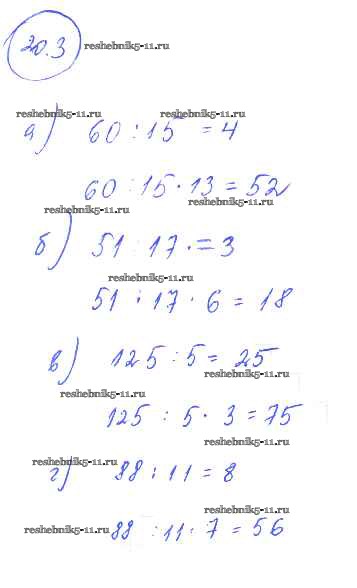 20.3 reshebnik5-11.ru
reshebnik5-11.ru reshebnik5-11.ru
а) 60 : 15 = 4
60 : 15 · 13 = 52
reshebnik5-11.ru
reshebnik5-11.ru
б) 51 : 17 · = 3
reshebnik5-11.ru
51 : 17 · 6 = 18
в) 125 : 5 = 25
reshebnik5-11.ru
reshebnik5-11.ru
125 : 5 · 3 = 75
reshebnik5-11.ru
reshebnik5-11.ru
г) 88 : 11 = 8
reshebnik5-11.ru
reshebnik5-11.ru
88 : 11 · 7 = 56